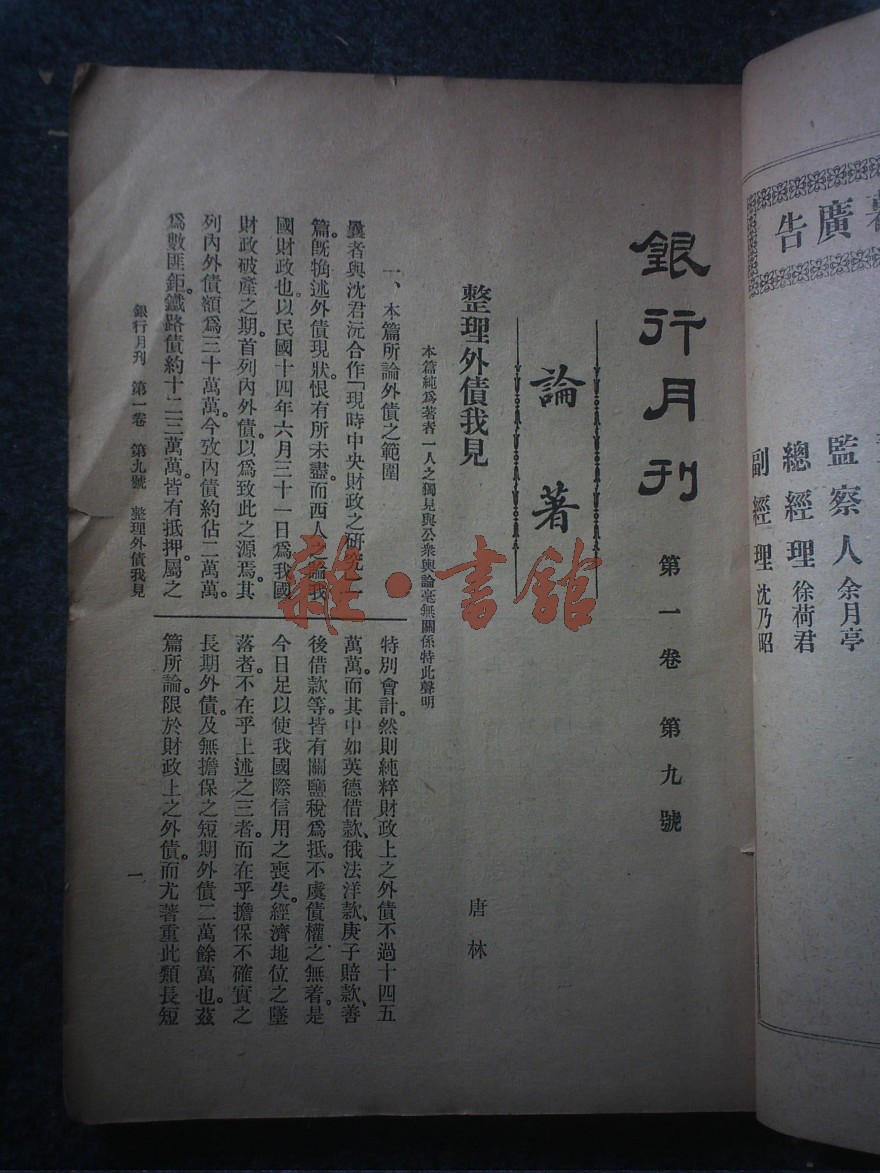 廣告
監察人 余月亭
總經理 徐荷君
副經理 沈乃昭
銀行月刊 第一卷 第九號
論著
整理外債我見 唐林
本篇純爲著者一人之獨見與公衆輿論毫無關係特此聲明
一、本篇所論外債之範圍
曩者與沈君沅合作「現時中央財政之研究」一
篇。既犓述外債現狀。恨有所未盡。而西人之論我
國財政也。以民國十四年六月三十一日爲我國
財政破產之期。首列內外債。以爲致此之源焉。其
列內外債額爲三十萬萬。今攷內債約佔二萬萬。
爲數匪鉅。鐵路債約十二三萬萬。皆有抵押。屬之
特別會計。然則純粹財政上之外債不過十四五
萬萬。而其中如英德借款、俄法洋款、庚子賠款、善
後借款等。皆有關鹽稅爲抵。不虞債權之無着。是
今日足以使我國際信用之喪失。經濟地位之墜
落者。不在乎上述之三者。而在乎擔保不確實之
長期外債。及無擔保之短期外債二萬餘萬也。茲
篇所論。限於財政上之外債。而尤著重此類長短
銀行月刊 第一卷 第九號 整理外債我見
一
雜·書館